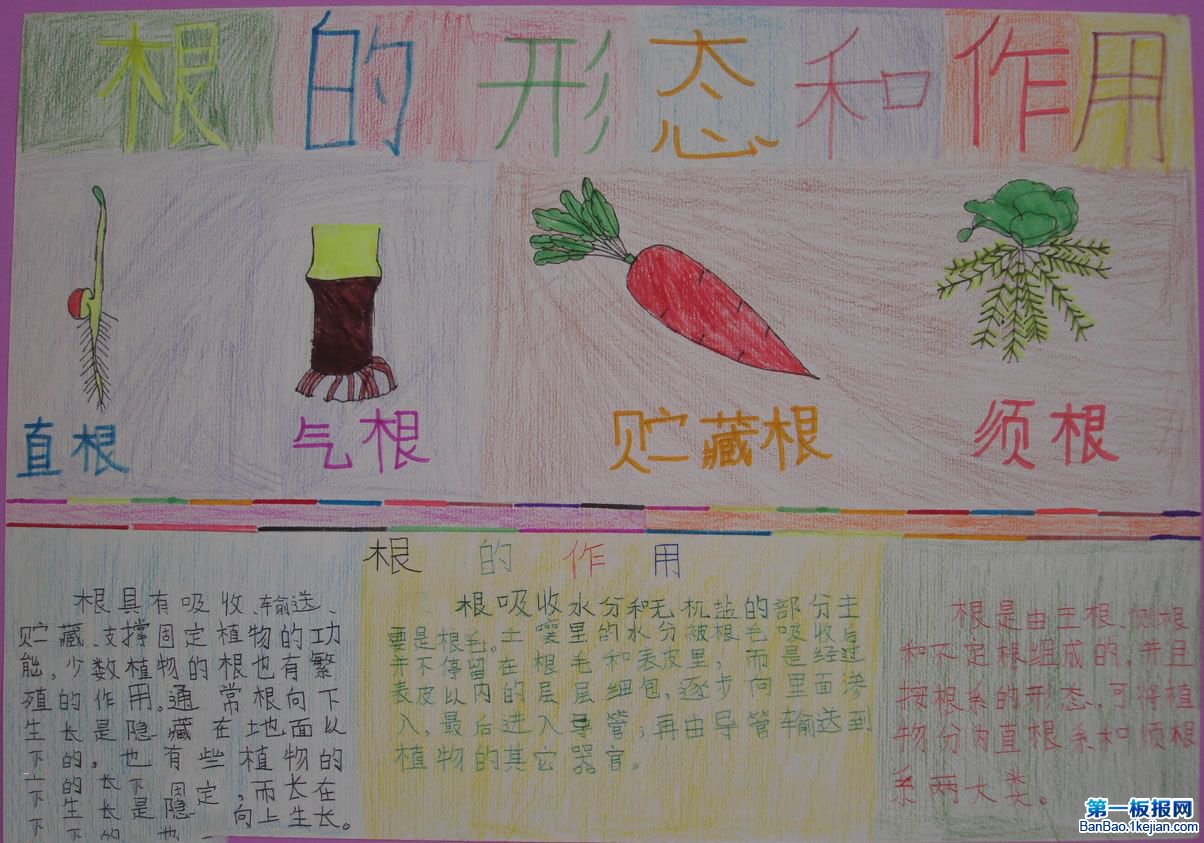 根的形态和作用
直根
气根
贮藏根
须根
根的作用
根具有吸收、输送、
贮藏、支撑固定植物的功
能,少数植物的根也有繁
殖的作用。通常根向下
生长是隐藏在地面以
下的。也有些植物的
下的长下固定,而长在
下生长是隐 向上生长。
下下的 也
根吸收水分和无机盐的部分主
要是根毛。土壤里的水分被根毛吸收后
并不停留在根毛和表皮里,而是经过
表皮以内的层层细包,逐步向里面渗
入,最后进入导管;再由导管输送到
植物的其它器官。
根是由主根、侧根
和不定根组成的,并且
按根系的形态,可将植
物分为直根系和须根
系两大类。
第一板报网
BanBao.1kejian.com